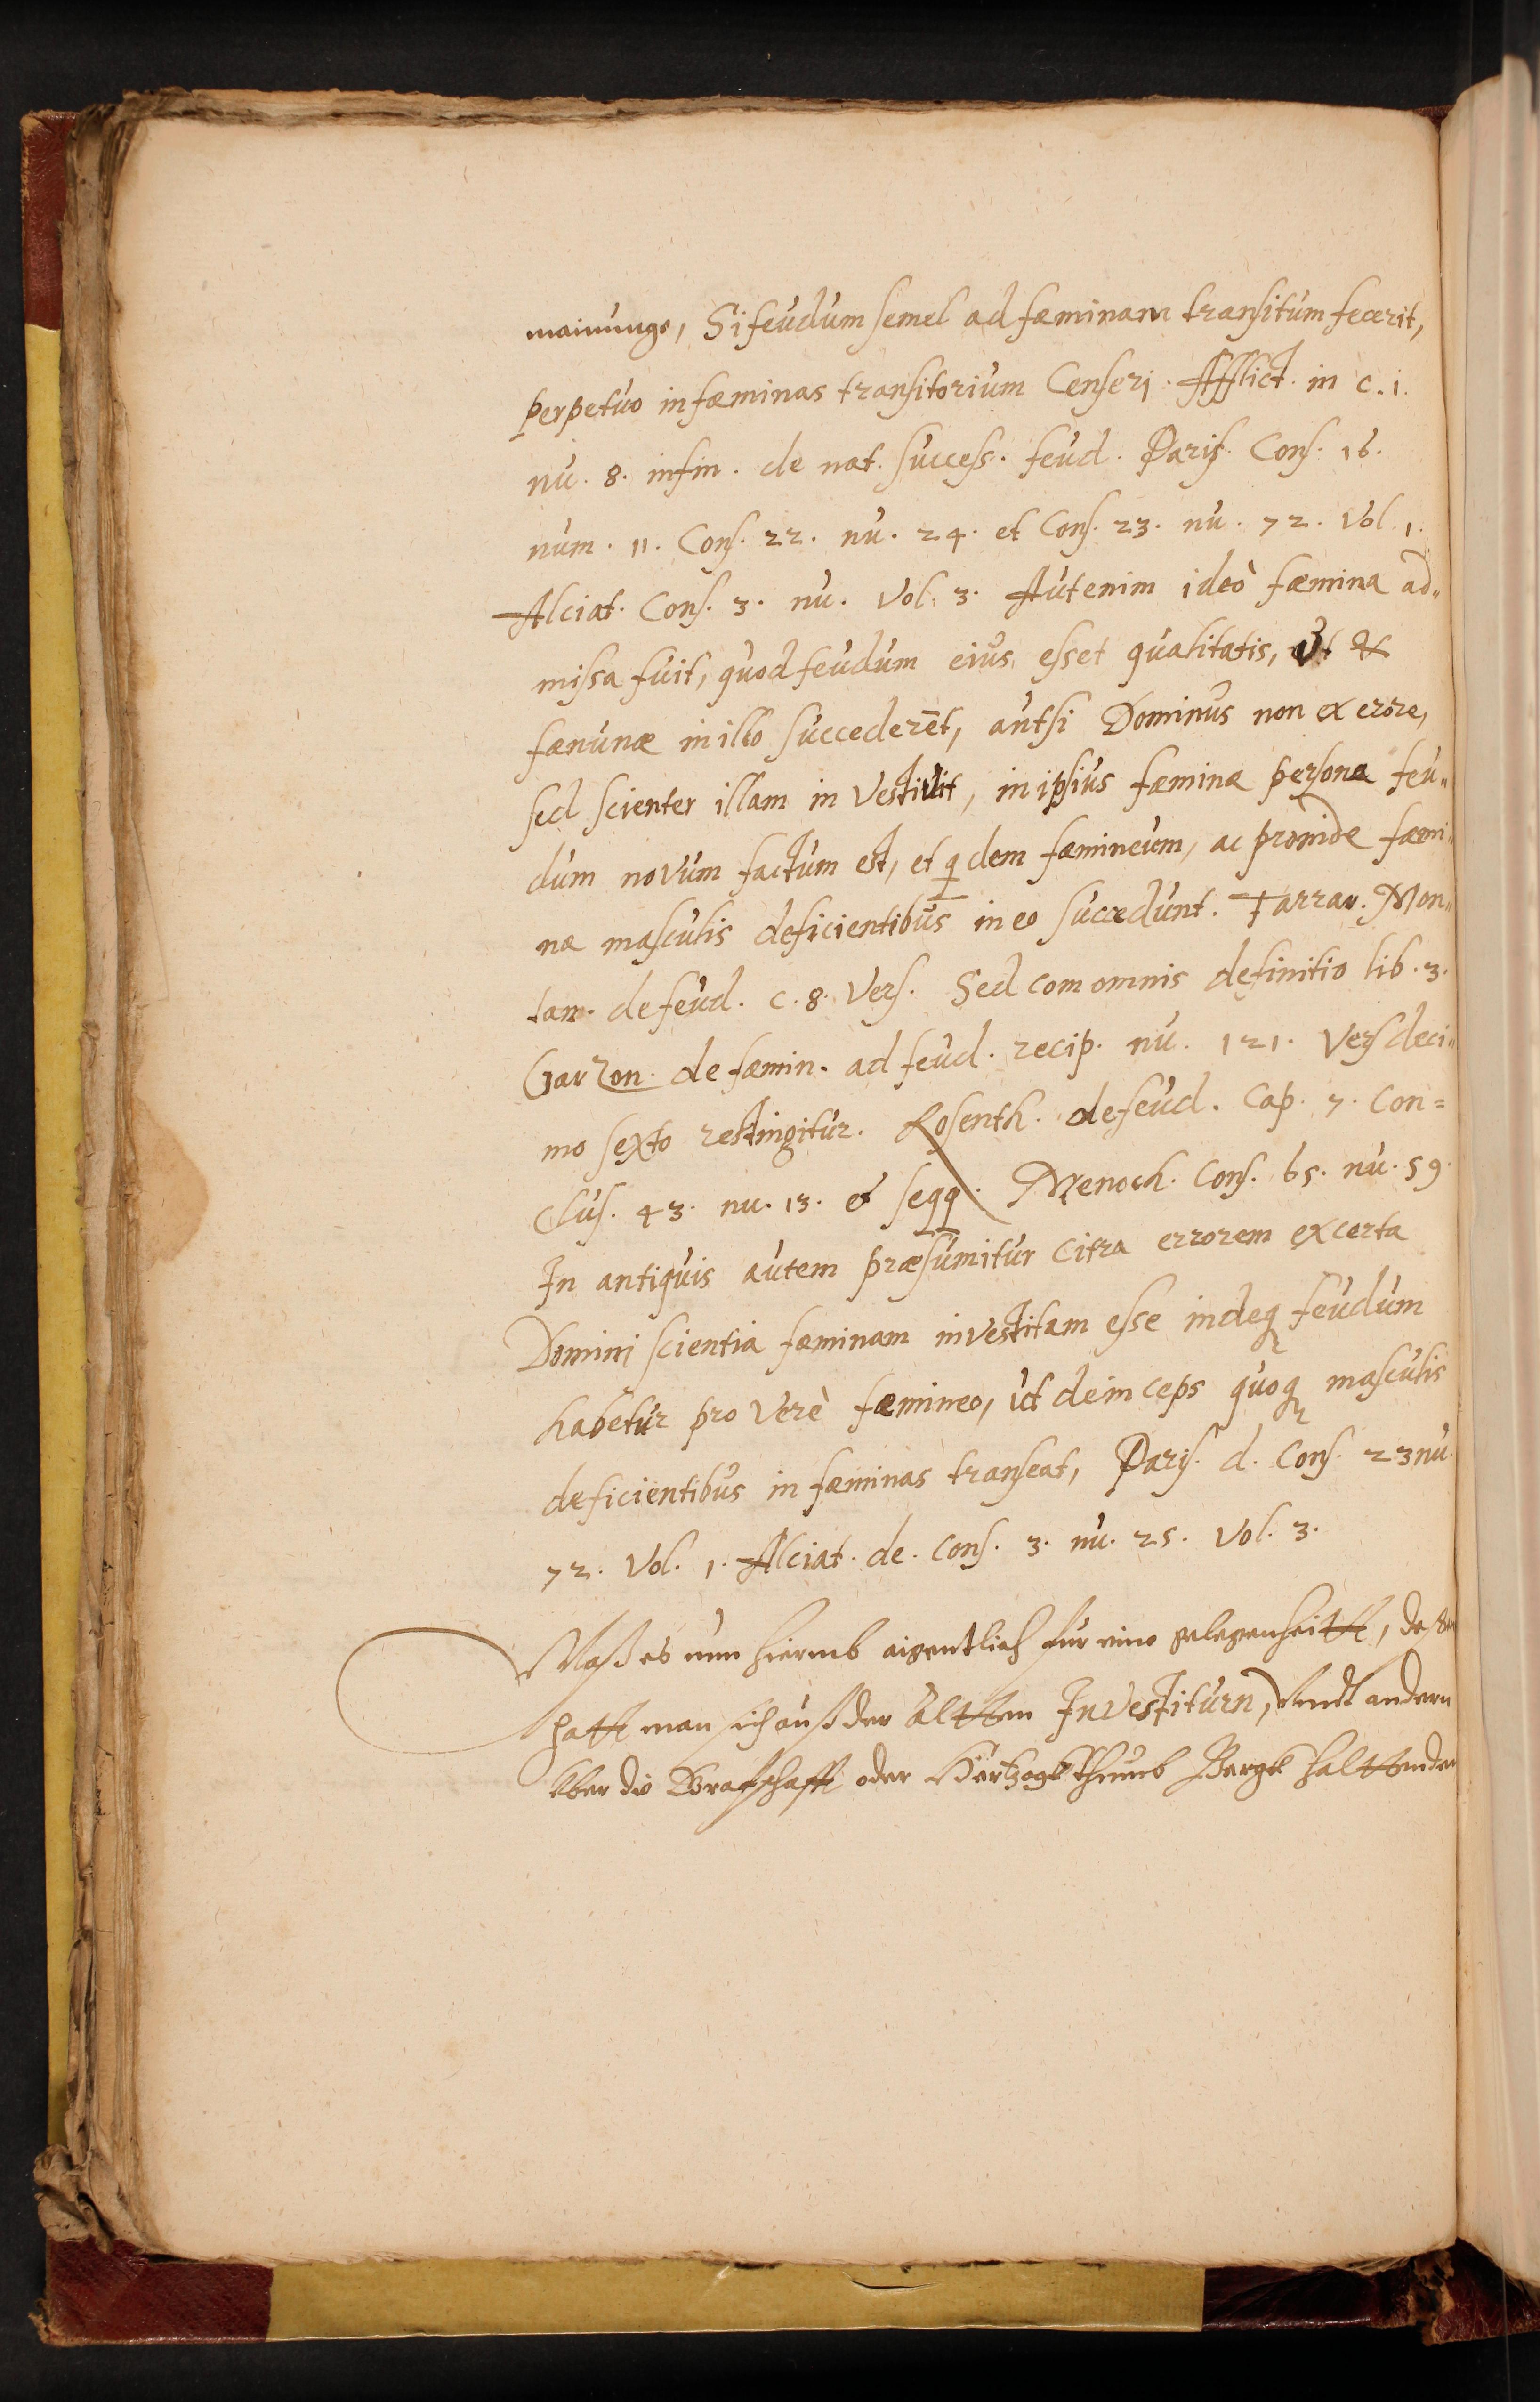 mainunge, Si feudum semel ad fæminam transitum fecerit,
perpetuo in fæminas transitorium Censerj. Afflict. in c. i.
nu. 8. in fin. de nat. success. feud. Paris. Cons. 16.
num. 11. Cons. 22. nu. 24. et Cons. 23. nu. 72. Vol. 1.
Alciat. Cons. 3. nu. Vol. 3. Aut enim ideò fæmina ad„
missa fuit, quod feudum eius esset qualitatis, Vt &
fæminæ in illo succederēt, aut si Dominus non ex erore,
sed scienter illam in Vestiuit, in ipsius fæminæ persona feu„
dum novum factum est, et qdem fæmineum, ac proinde fæmi„
næ masculis deficientibus in eo succedunt. Iarrau. Mon„
tan. de feud. c. 8. Vers. Sed com omnis definitio lib. 3.
Garzon. de fæmin. ad feud. recip. nu. 121. Vers deci„
mo sexto restingitur. Rosenth. de feud. Cap. 7. Con=
clus. 43. nu. 13. et seqq. Menoch. Cons. 65. nu. 59.
In antiquis autem præsumitur Citra errorem ex certa
Dominj scientia fæminam investitam esse indeq feudum
habetur pro Verè fæmineo, ut deinceps quoq masculis
deficientibus in fæminas transeat, Paris. d. Cons. 23 nu.
72. Vol. 1. Alciat. de. Cons. 3. nu. 25. Vol. 3.
Waß es nun hiermb aigentlich für eine gelegenheitt,
hatt man sich auß der Altten Investiturn, Vndt andern
Vber die Graffschafft oder Hertzogkthumb Bergk halttender